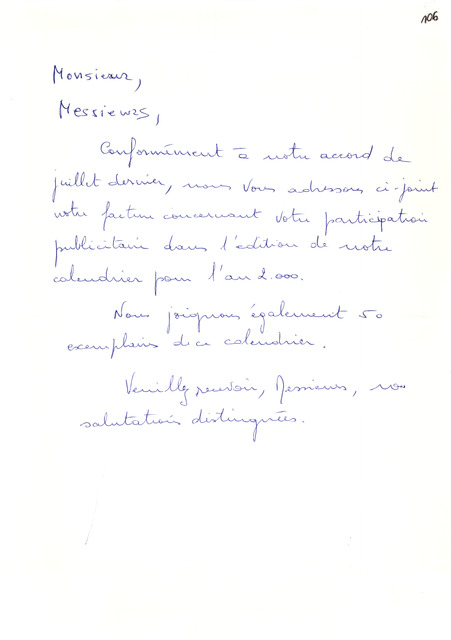 106
Monsieur,
Messieurs,
Conformément à notre accord de
juillet dernier, nous vous adressons ci-joint
notre facture concernant votre participation
publicitaire dans l'édition de notre
calendrier pour l'an 2.000.
Nous joignons également 50
exemplaires de ce calendrier.
Veuillez recevoir, Messieurs, nos
salutations distinguées.